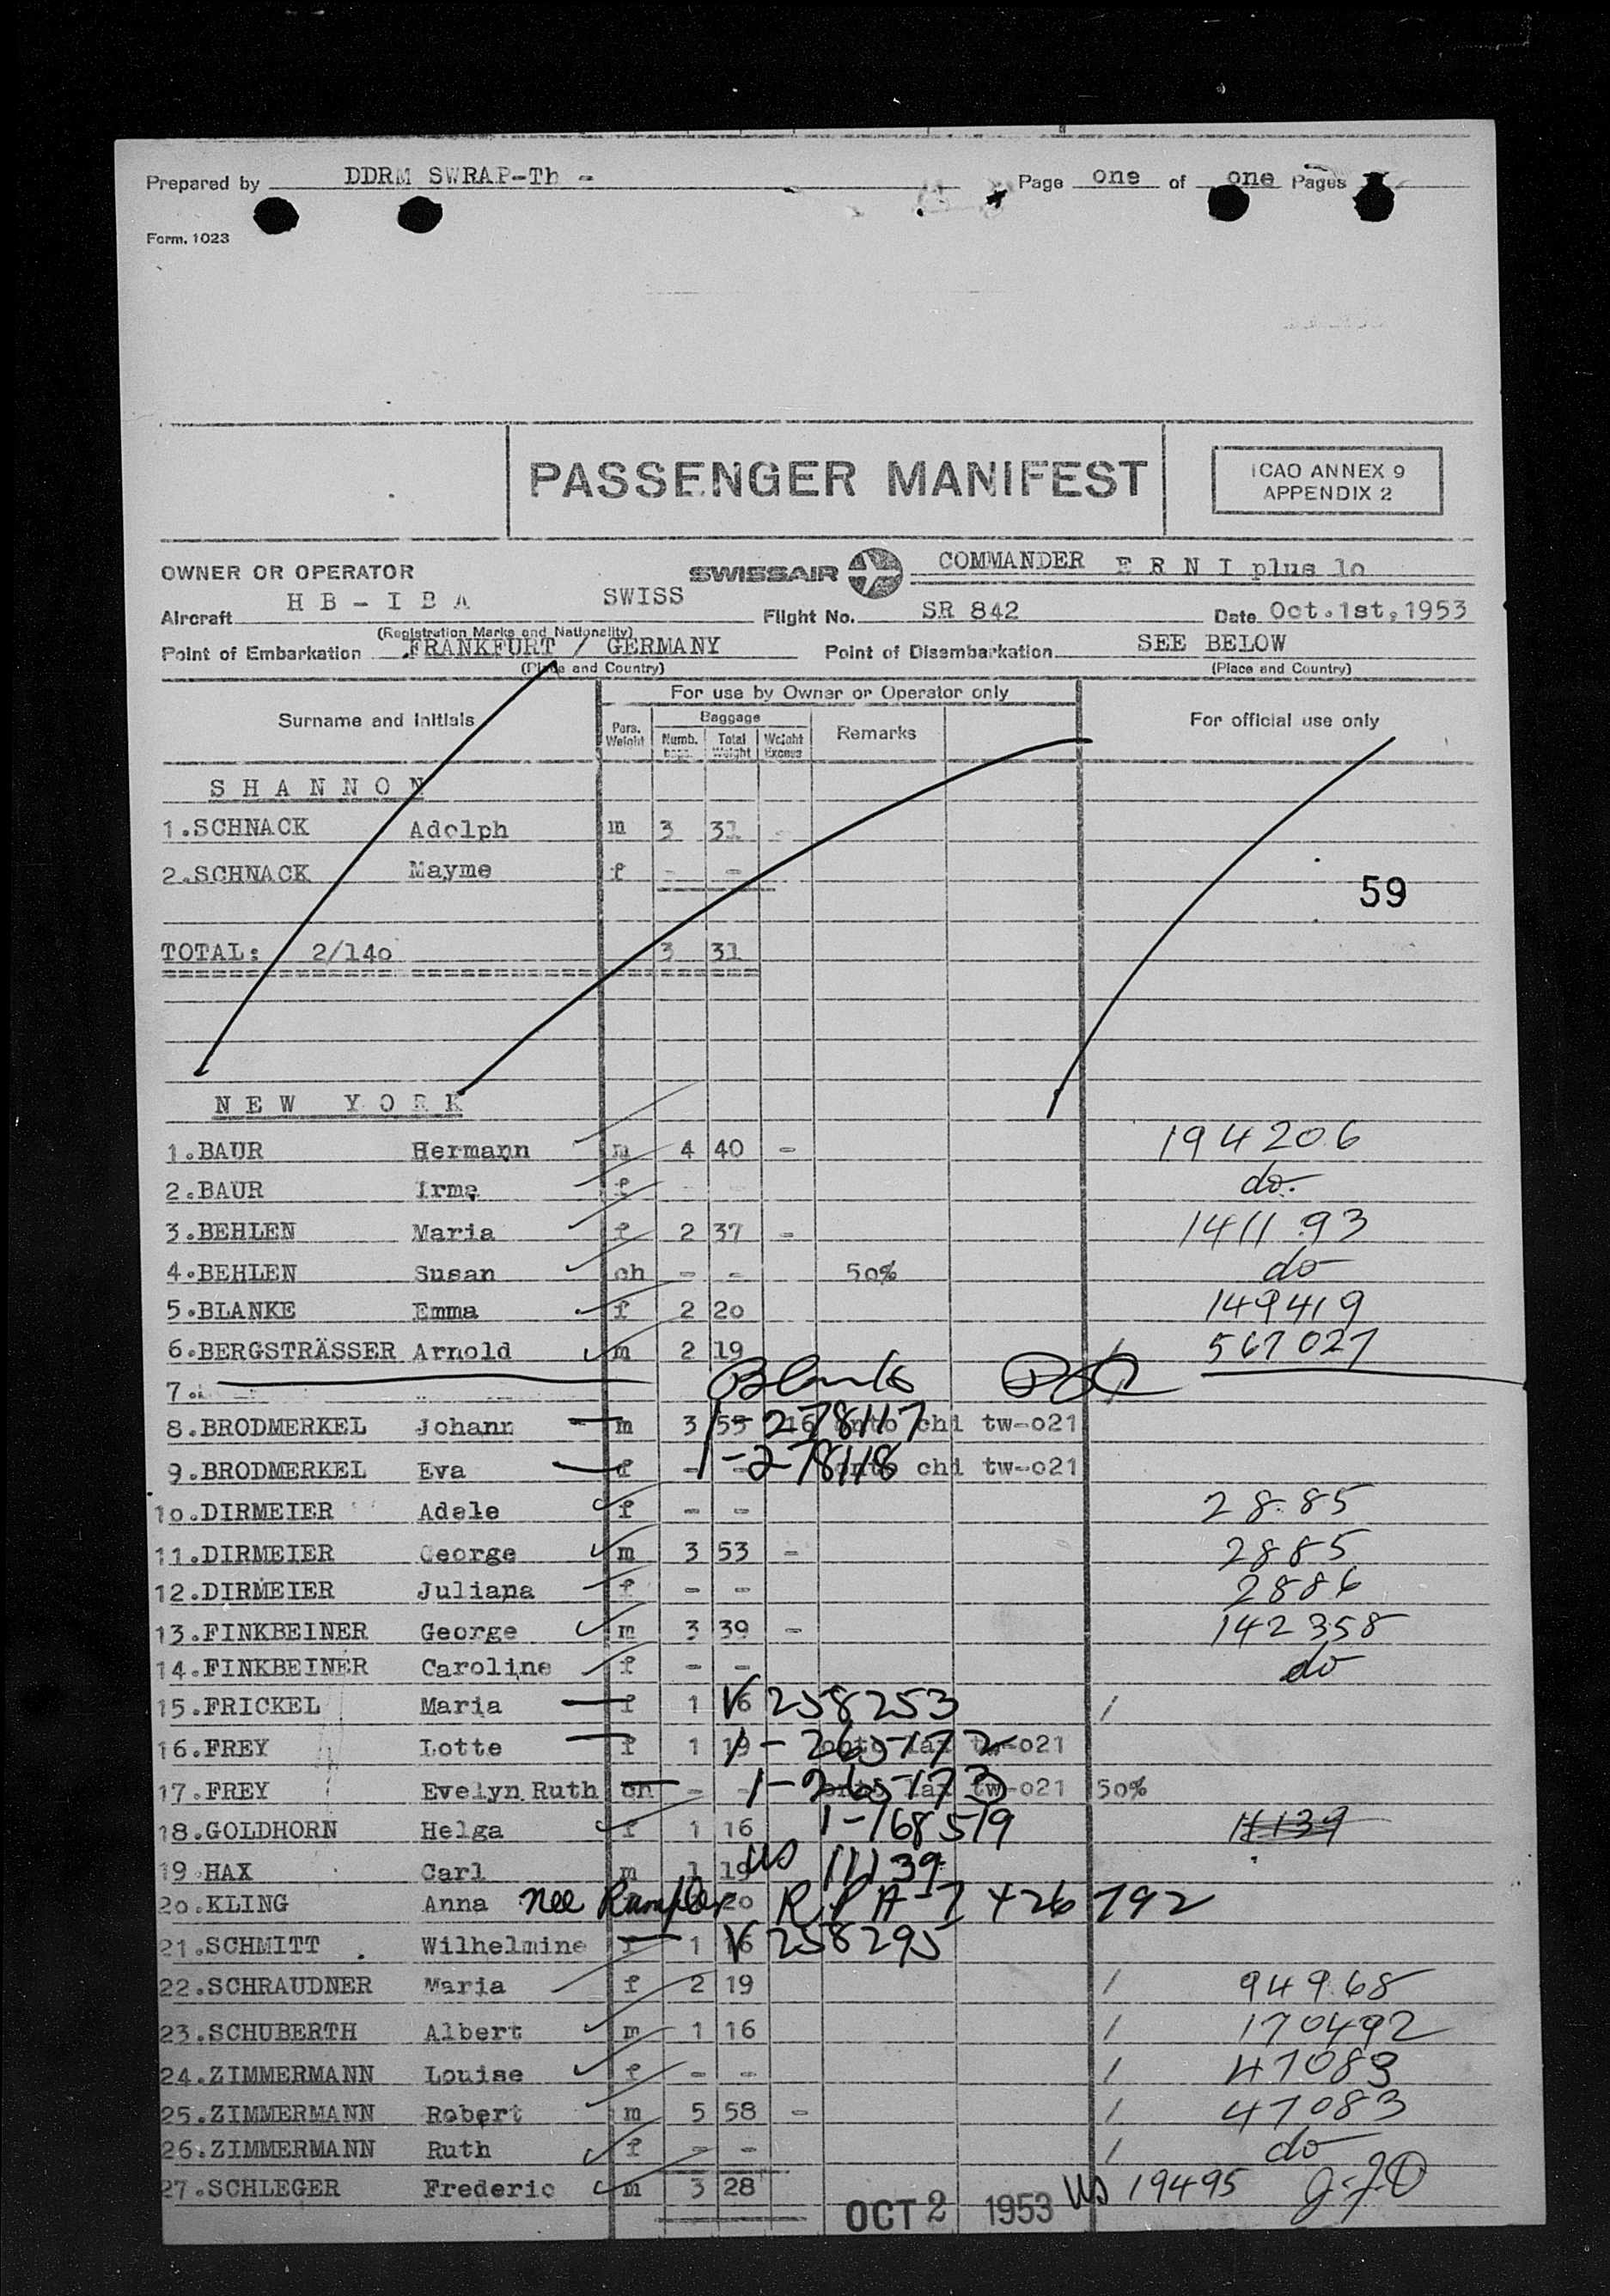 Prepared by DDRM SWRAP-Th - Page one of one Pages
Form. 1023
PASSENGER MANIFEST
ICAO ANNEX 9
APPENDIX 2
OWNER OR OPERATOR SWISSAIR COMMANDER E R N I plus lo
Aircraft H B - I B A SWISS Flight No. SR 842 Date Oct.1st,1953
(Registration Marks and Nationality)
Point of Embarkation FRANKFURT / GERMANY Point of Disembarkation SEE BELOW
(Place and Country) (Place and Country)
For use by Owner or Operator only
Surname and Initials Pars. Weight Baggage Remarks For official use only
Numb. Total Weight Weight Excess
S H A N N O N
1.SCHNACK Adolph m 3 31 -
2.SCHNACK Mayme f - -
59
TOTAL: 2/14o 3 31
N E W Y O R K
1.BAUR Hermann m 4 40 - 194206
2.BAUR Irma f - - do.
3.BEHLEN Maria f 2 37 - 141193
4.BEHLEN Susan ch - - 50% do
5.BLANKE Emma f 2 20 149419
6.BERGSTRÄSSER Arnold m 2 19 567027
7. Blank
8.BRODMERKEL Johann m 3 55 16 onto chi tw-o21 1-278117
9.BRODMERKEL Eva f - - onto chi tw-o21 1-278118
1o.DIRMEIER Adele f - - 2885
11.DIRMEIER George m 3 53 - 2885
12.DIRMEIER Juliana f - - 2886
13.FINKBEINER George m 3 39 - 142358
14.FINKBEINER Caroline f - - do
15.FRICKEL Maria f 1 16 V258253
16.FREY Lotte f 1 19 onto lax tw-o21 1-265172
17.FREY Evelyn Ruth ch - - onto lax tw-o21 50% 1-265173
18.GOLDHORN Helga f 1 16 1-168519 11139
19.HAX Carl m 1 19 US 11139
2o.KLING Anna nee 20 426792
21.SCHMITT Wilhelmine f 1 16 V258295
22.SCHRAUDNER Maria f 2 19 / 94968
23.SCHUBERTH Albert m 1 16 / 170492
24.ZIMMERMANN Louise f - - / 47083
25.ZIMMERMANN Robert m 5 58 - / 47083
26.ZIMMERMANN Ruth f - - / do
27.SCHLEGER Frederic m 3 28 US 19495
OCT 2 1953